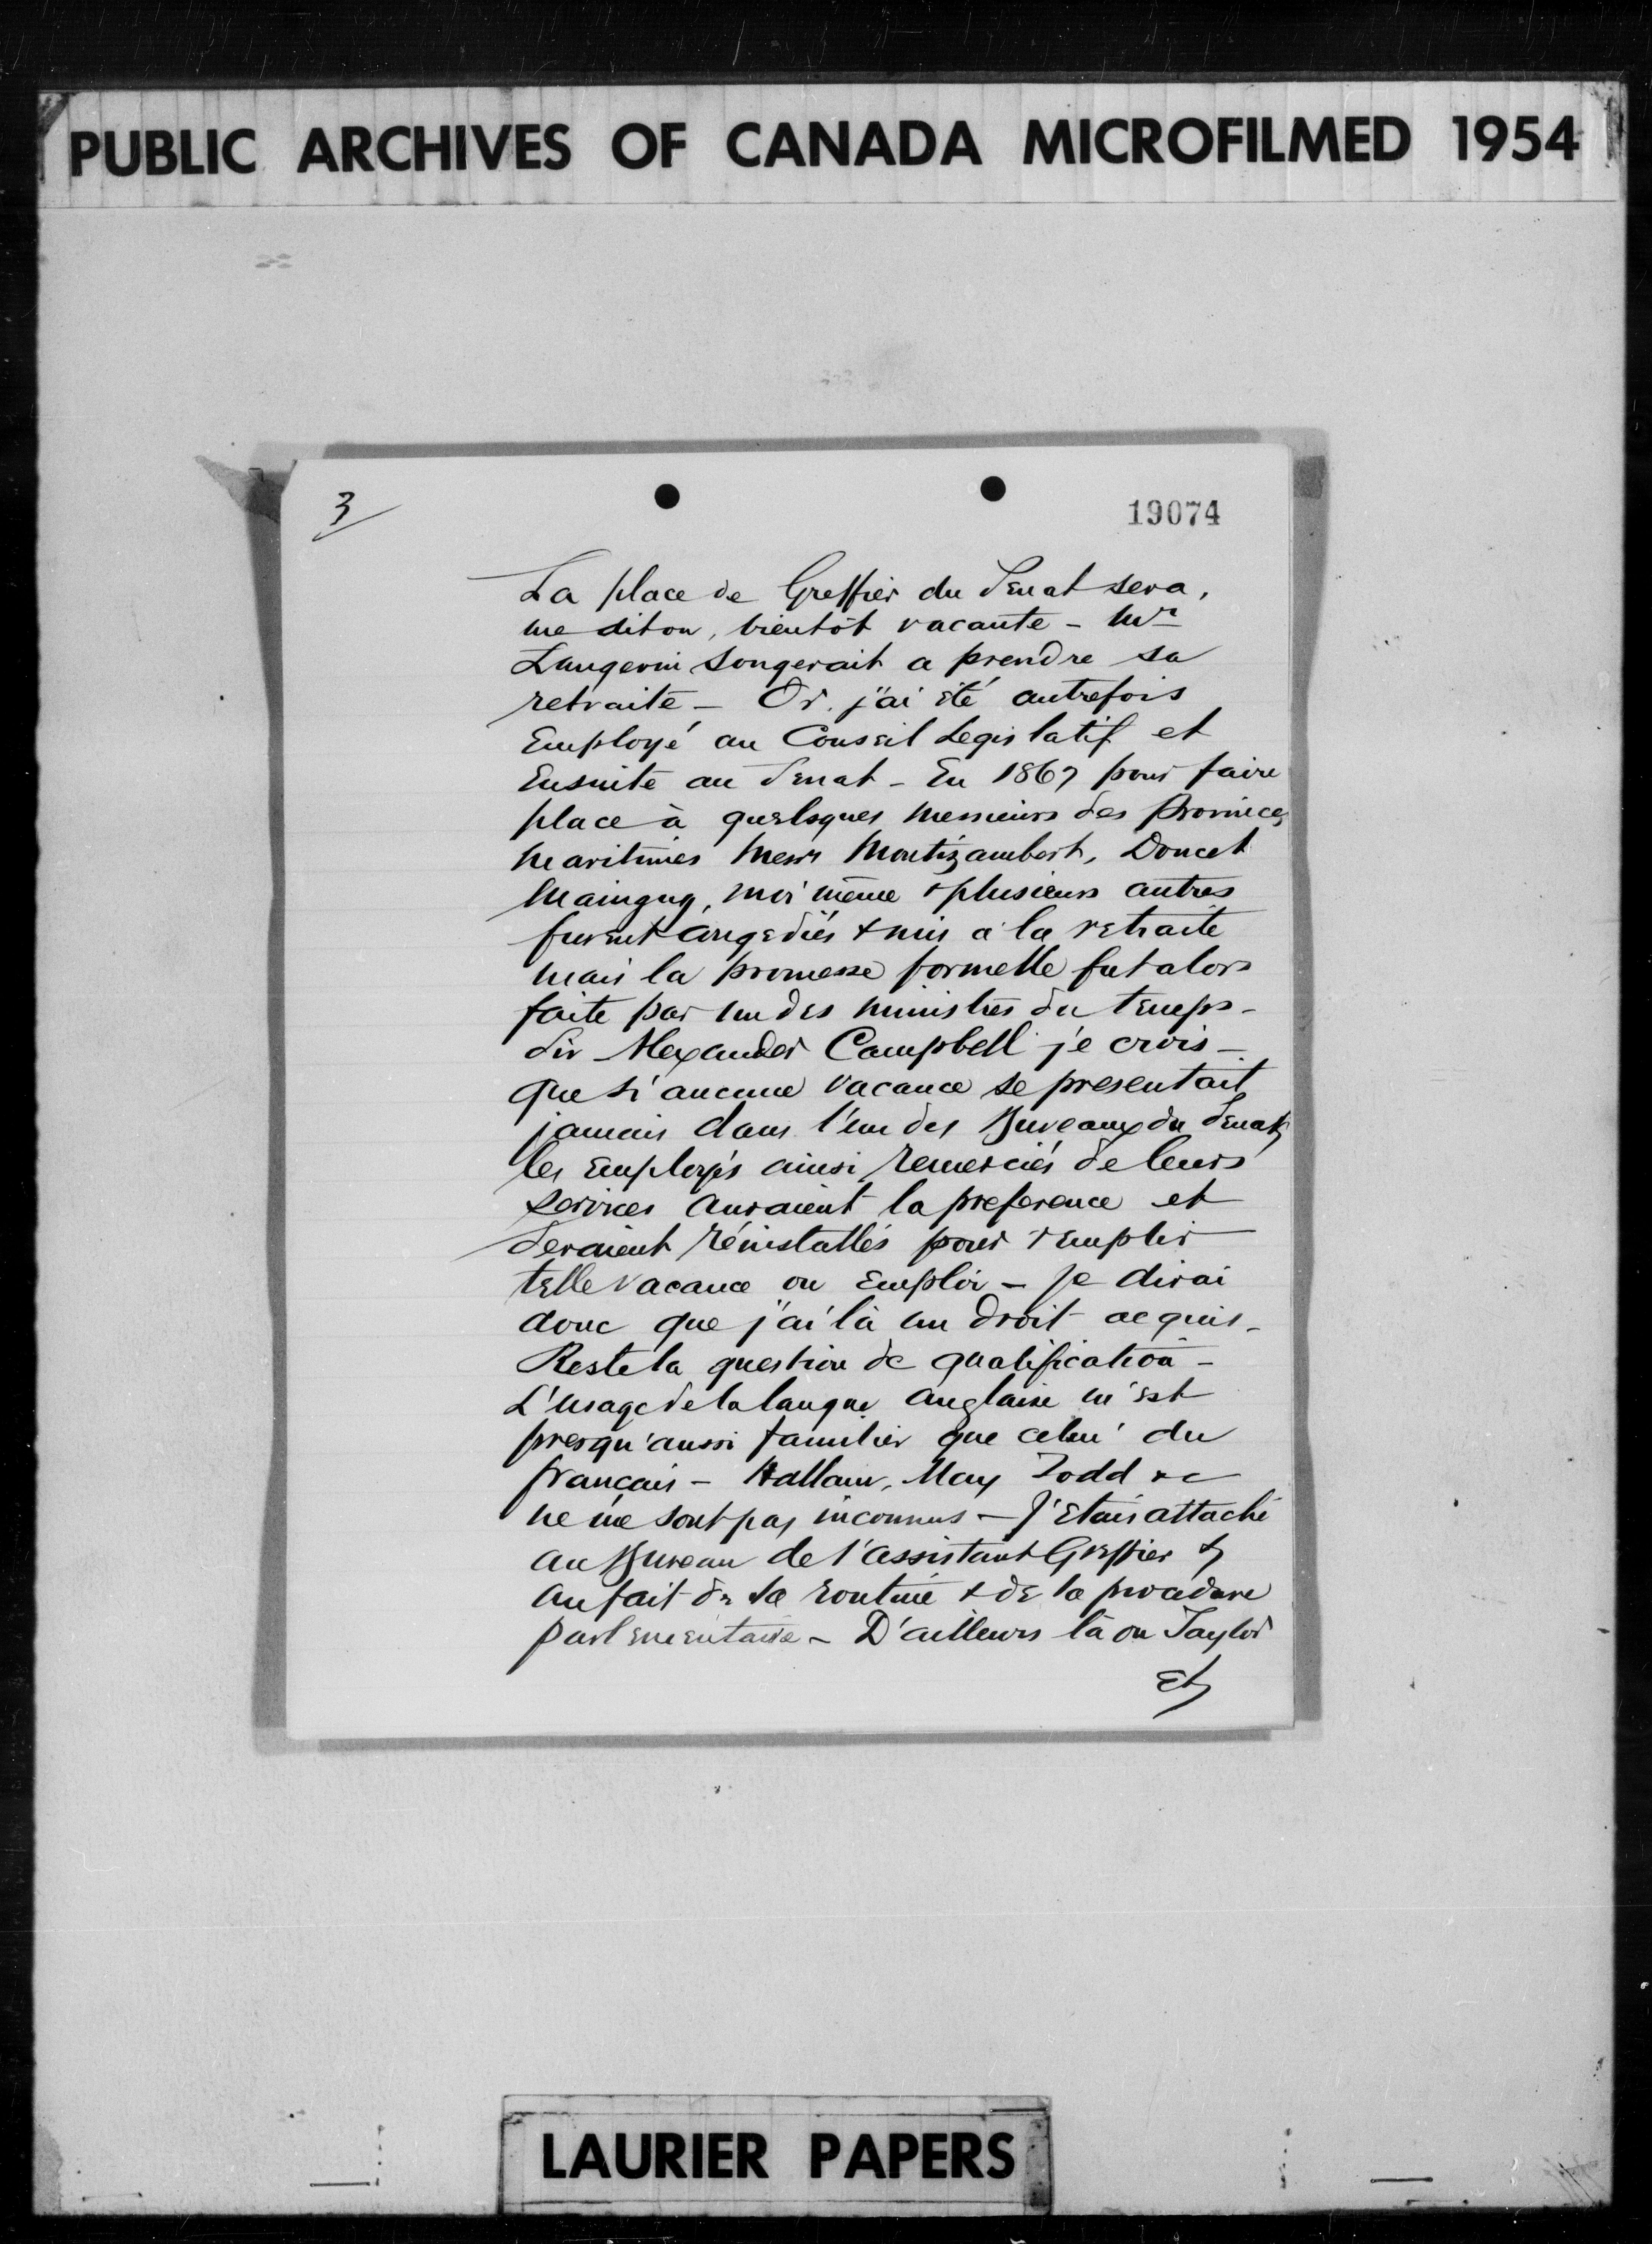 PUBLIC ARCHIVES OF CANADA MICROFILMED 1954
3
19074
La place de Greffier du Senat sera,
me diton, bientôt vacante - Mr
Langevin songerait a prendre sa
retraite - Or. j'ai été autrefois
Employé au Conseil Legislatif et
Ensuite au Senat - En 1867 pour faire
place à quelsques messieurs des Provinces
Maritimes Messrs Montizambert, Doucet
Mainguy, moi même & plusieurs autres
furent congediés & mis a la retraite
mais la promesse formelle fut alors
faite par un des ministres du temps -
Sir Alexander Campbell je crois -
que si aucune vacance se presentait
jamais dans l'un des Bureaux du Senat,
les Employés ainsi remerciés de leurs
services auraient la preference et
seraient réinstallés pour remplir
telle vacance ou Emploi - Je dirai
donc que j'ai là un droit acquis -
Reste la question de qualification -
L'usage de la langue anglaise m'est
presqu'aussi familier que celui du
français - Hallam, May Todd &c
ne me sont pas inconnus - J'Etais attaché
au Bureau de l'assistant Greffier &
au fait de la routine & de la procedure
parlementaire - D'ailleurs là ou Taylor
Et
LAURIER PAPERS